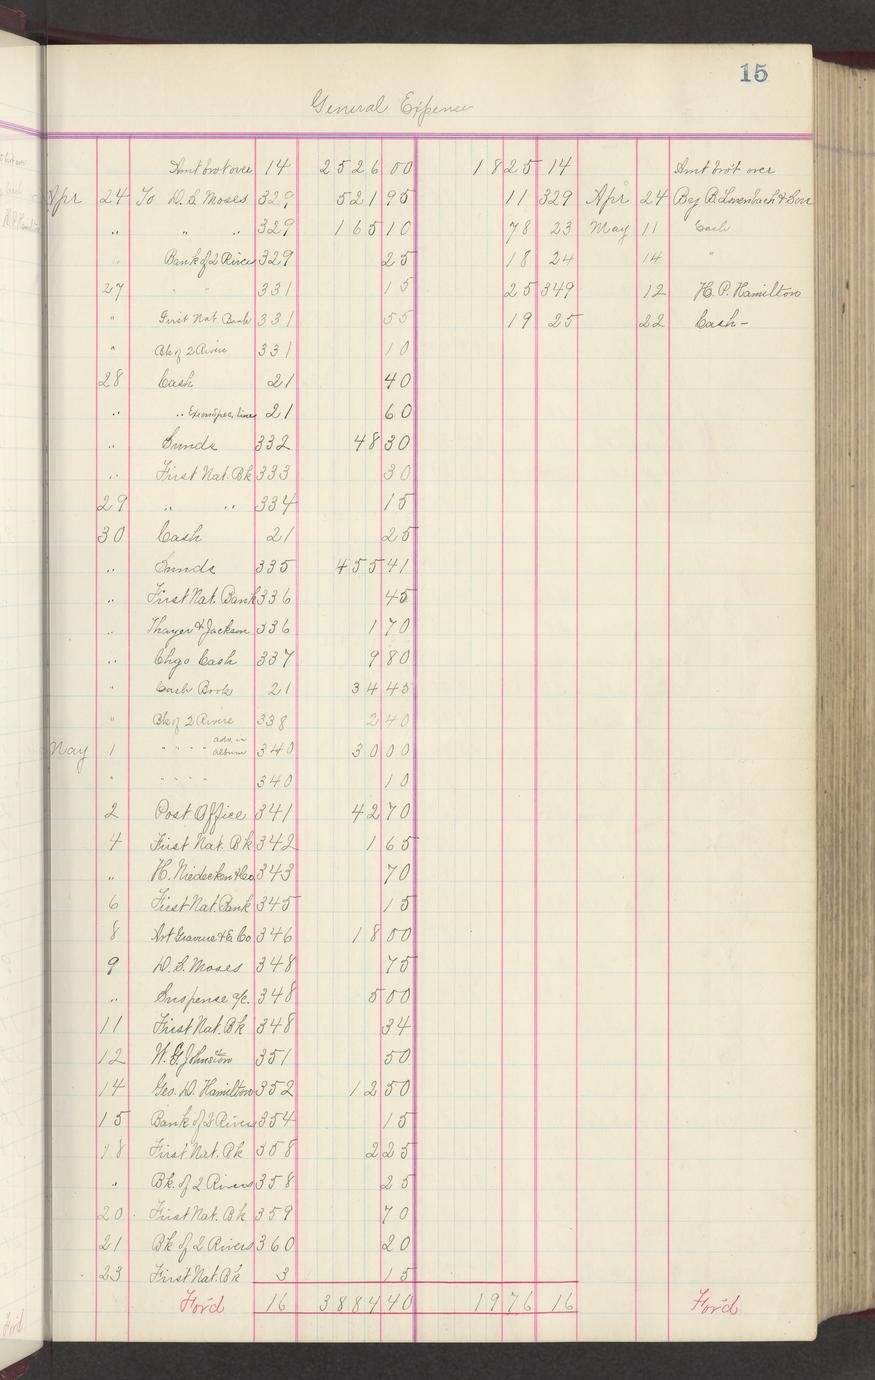 15
General Expense
Amt brot over 14 2526 00 1825 14 Amt bro't over
Apr 24 To D. S. Moses 329 521 95 11 329 Apr 24 By B. & Son
" " " 329 165 10 78 23 May 11 Cash
" Bank of 2 Rivers 329 25 18 24 14 "
27 " " 331 15 25 349 12 H. P. Hamilton
" First Nat. Bank 331 55 19 25 22 Cash -
" Bk of 2 Rivers 331 10
28 Cash 21 40
" " 21 60
" Sunds 332 48 30
" First Nat. Bk 333 30
29 " " 334 15
30 Cash 21 25
" Sunds 335 455 41
" First Nat. Bank 336 45
" Thayer & Jackson 336 1 70
" Chgo Cash 337 9 80
" Cash Book 21 34 45
" Bk of 2 Rivers 338 2 40
May 1 " " " " adv. in album 340 30 00
" " " " " 340 10
2 Post Office 341 42 70
4 First Nat. Bk 342 1 65
" H. Niedecken & Co 343 70
6 First Nat. Bank 345 15
8 Art Gravure & E. Co 346 18 00
9 D. S. Moses 348 75
" Suspense a/c. 348 5 00
11 First Nat. Bk 348 34
12 W. G. Johnston 351 50
14 Geo. D. Hamilton 352 12 50
15 Bank of 2 Rivers 354 15
18 First Nat. Bk 358 2 25
" Bk. of 2 Rivers 358 25
20 First Nat. Bk 359 70
21 Bk of 2 Rivers 360 20
23 First Nat. Bk 3 15
For'd 16 3884 40 1976 16 For'd